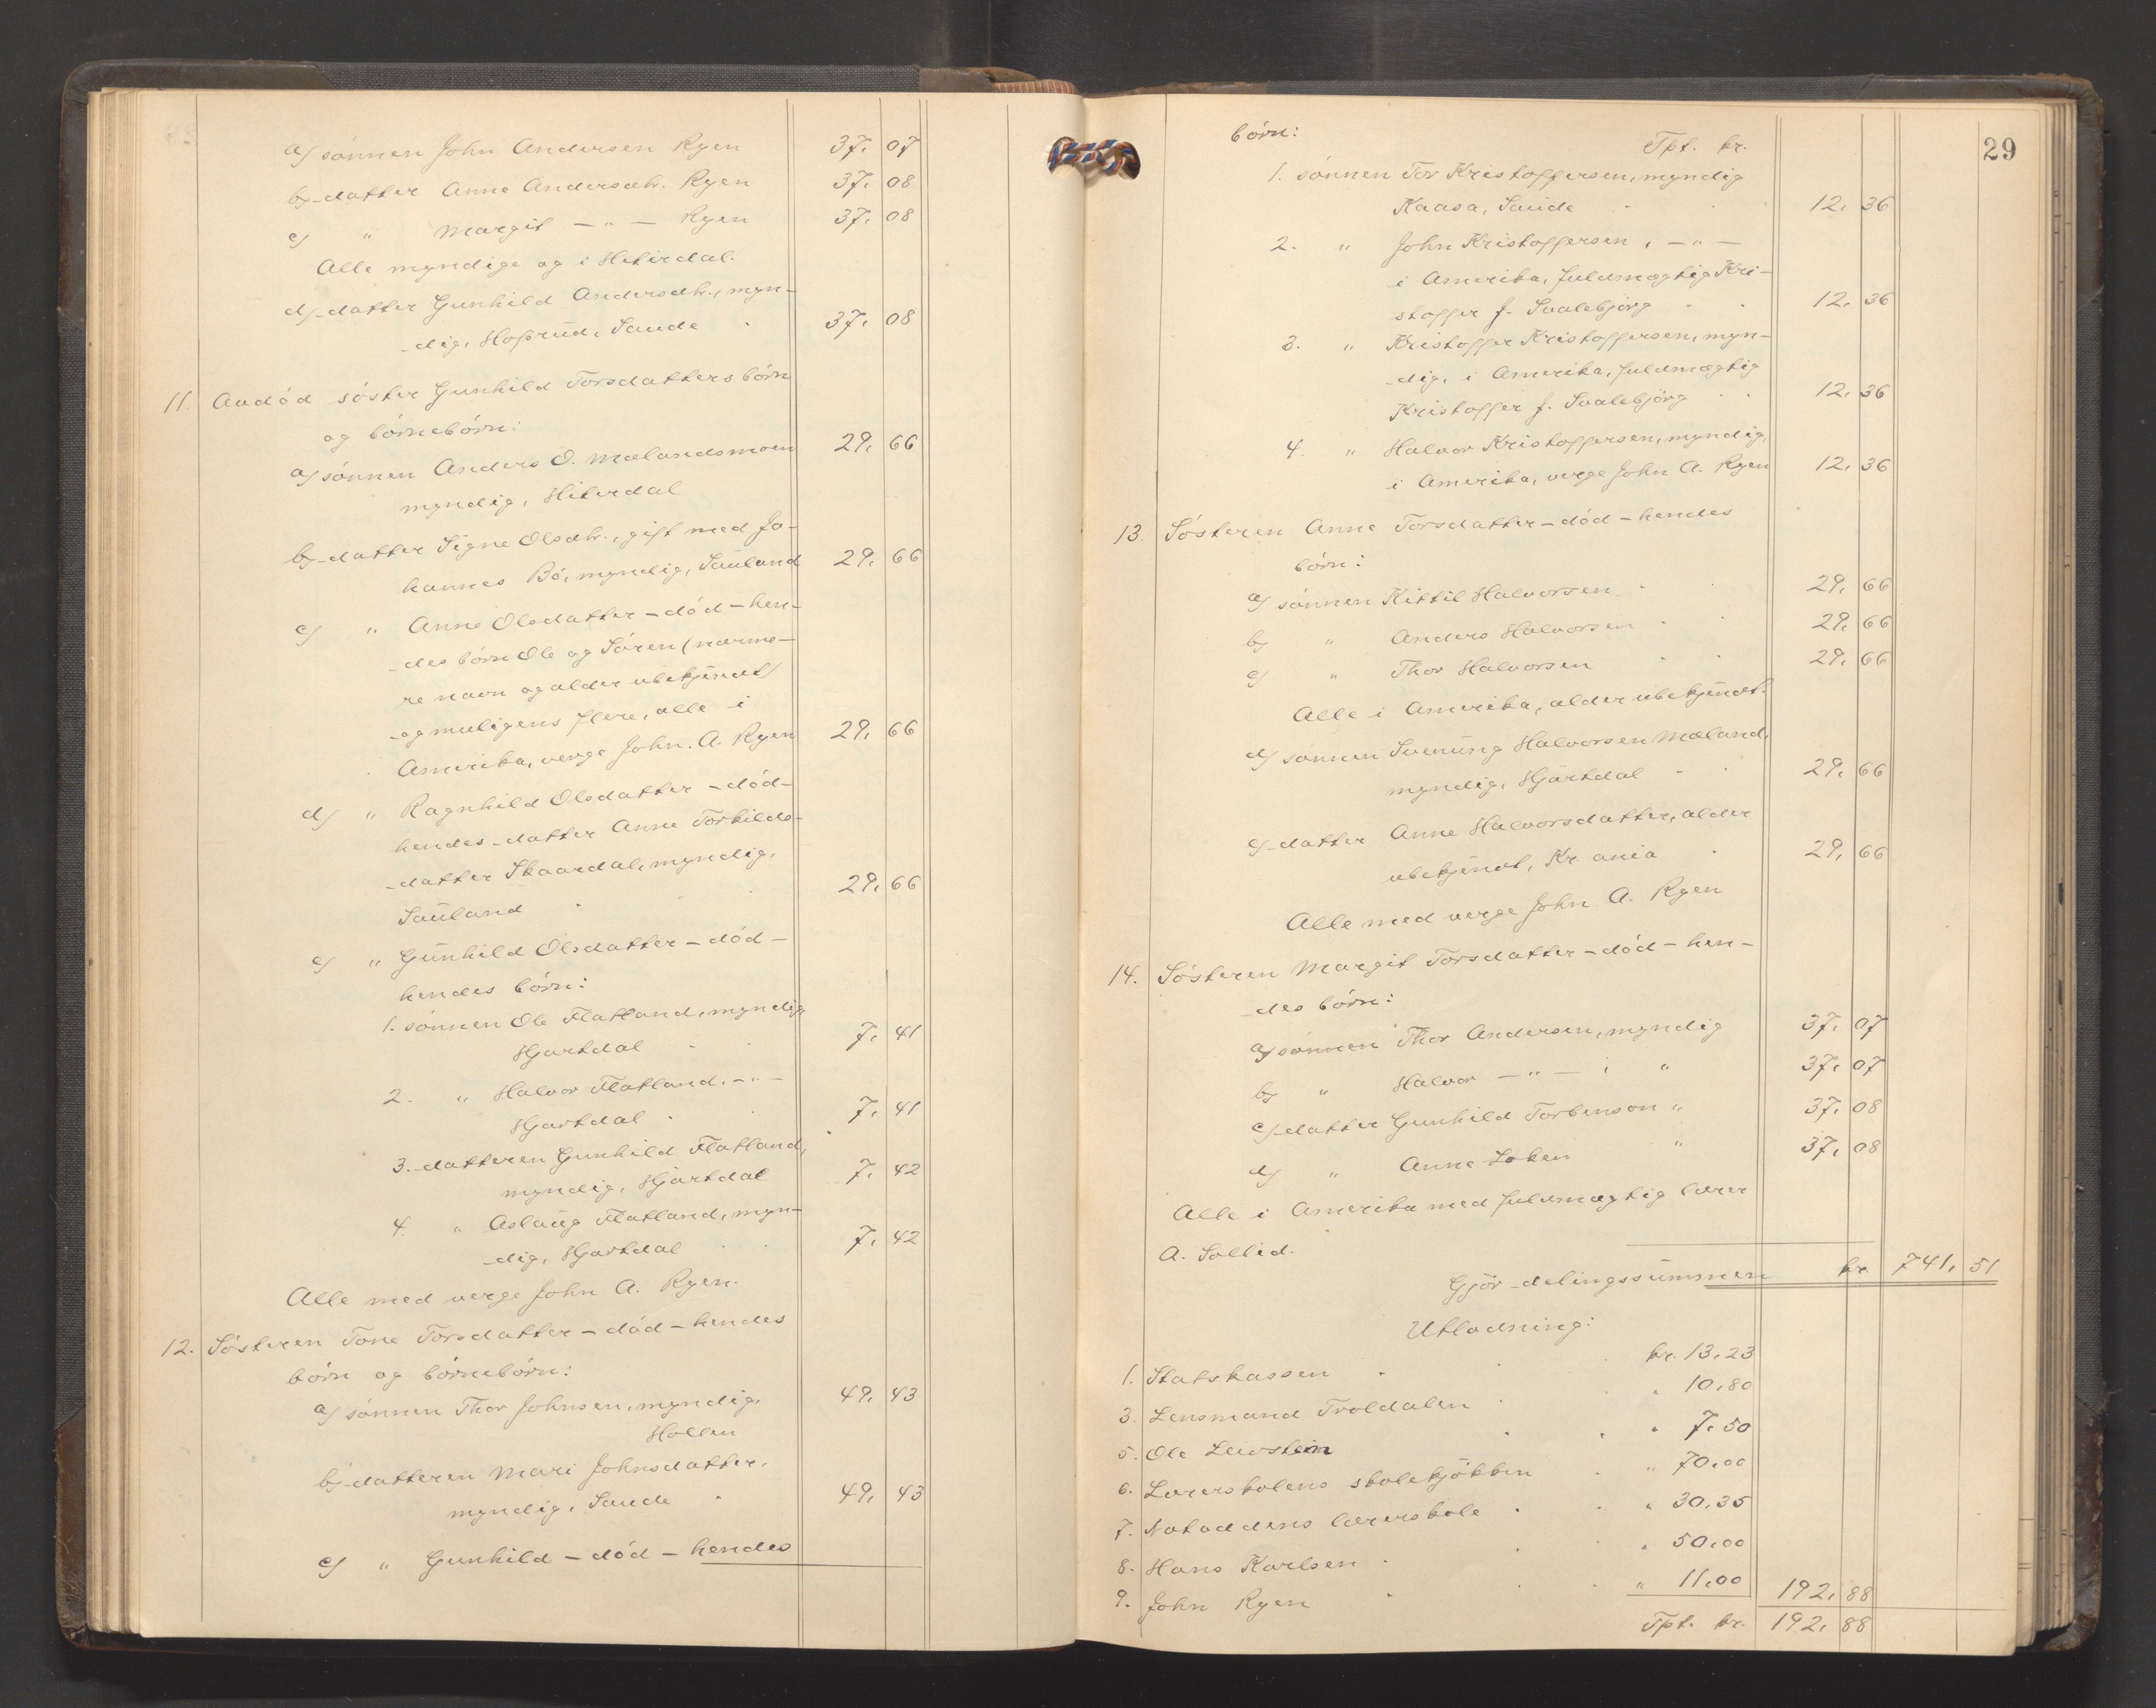 a/ sønnen John Andersen Ryen 37, 07
b/ datter Anne Andersdtr. Ryen 37, 08
c/ " Margit — " — Ryen 37, 08
Alle myndige og i Hiterdal.
d/ datter Gunhild Andersdtr., myn-
dig, Hoprud, Saude 37, 08
11. Avdød søster Gunhild Torsdatters børn
og børnebørn:
a/ sønnen Anders O. Mælandsmoen 29, 66
myndig, Hiterdal
b/ datter Signe Olsdtr., gift med Jo-
hannes Bö, myndig, Sauland 29, 66
c/ " Anne Olsdatter – død – hen-
des børn Ole og Sören (nærme-
re navn og alder ubekjendt)
og muligens flere, alle i
Amerika, verge John. A. Ryen 29, 66
d/ " Ragnhild Olsdatter – død –
hendes datter Anne Torkilds-
datter Skaardal, myndig,
Sauland 29, 66
e/ " Gunhild Olsdatter – død –
hendes børn:
1. sønnen Ole Flatland, myndig,
Hjartdal 7, 41
2. " Halvor Flatland, – " –
Hjartdal 7, 41
3. datteren Gunhild Flatland,
myndig, Hjartdal 7, 42
4. " Aslaug Flatland, myn-
dig, Hjartdal 7, 42
Alle med verge John A. Ryen.
12. Søsteren Tone Torsdatter – død – hendes
børn og børnebørn:
a/ sønnen Thor Johnsen, myndig, 49, 43
Hollen
b/ datteren Mari Johnsdatter,
myndig, Saude 49, 43
c/ " Gunhild – død – hendes
29
børn:
Tpt. kr.
1. sønnen Tor Kristoffersen, myndig
Kaasa, Saude 12, 36
2. " John Kristoffersen, – " –
i Amerika, fuldmægtig Kri-
stoffer J. Svalebjörg 12, 36
3. " Kristoffer Kristoffersen, myn-
dig, i Amerika, fuldmægtig
Kristoffer J. Svalebjörg 12, 36
4. " Halvor Kristoffersen, myndig,
i Amerika, verge John A. Ryen 12, 36
13. Søsteren Anne Torsdatter – død – hendes
børn:
a/ sønnen Kittil Halvorsen 29, 66
b/ " Anders Halvorsen 29, 66
c/ " Thor Halvorsen 29, 66
Alle i Amerika, alder ubekjendt.
d/ sønnen Svenung Halvorsen Mæland,
myndig, Hjartdal 29, 66
e/ datter Anne Halvorsdatter, alder
ubekjendt, Kr.ania 29, 66
Alle med verge John A. Ryen
14. Søsteren Margit Torsdatter – død – hen-
des børn:
a/ sønnen Thor Andersen, myndig 37, 07
b/ " Halvor — " — , " 37, 07
c/ datter Gunhild Torbenson " 37, 08
d/ " Anne Loken " 37, 08
Alle i Amerika med fuldmægtig lærer
A. Sollid.
Gjör delingssummen kr. 741, 51
Utlodning:
1. Statskassen kr. 13,23
3. Lensmand Troldalen " 10,80
5. Ole Leivstein " 7,50
6. Lærerskolens skolekjøkken " 70,00
7. Notoddens lærerskole " 30,35
8. Hans Karlsen " 50,00
9. John Ryen " 11,00 192, 88
Tpt. kr. 192, 88